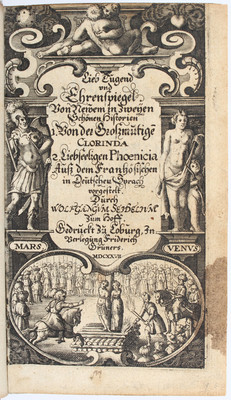 Lieb Tugend
vnd
Ehrenspiegel
Von Newem in Zweyen
Schönen Historien
1. Von der Großmütigē
CLORINDA
2. Liebseeligen Phoenicia
Auß dem Frantzösischen
in Deutscher Sprach
vorgestelt.
Durch
WOLFGANGUM
Zum Hoff
Gedruckt Zu Coburg, In
Verlegung Friderich
Gruners.
MDCXXVII
MARS
VENUS